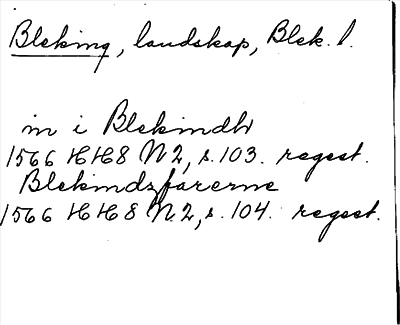 Bleking, landskap, Blek. l.
in i Blekindh
1566 HH8 N. 2, s. 103. regest.
Blekindzfarerne
1566 HH8 N. 2, s. 104. regest.